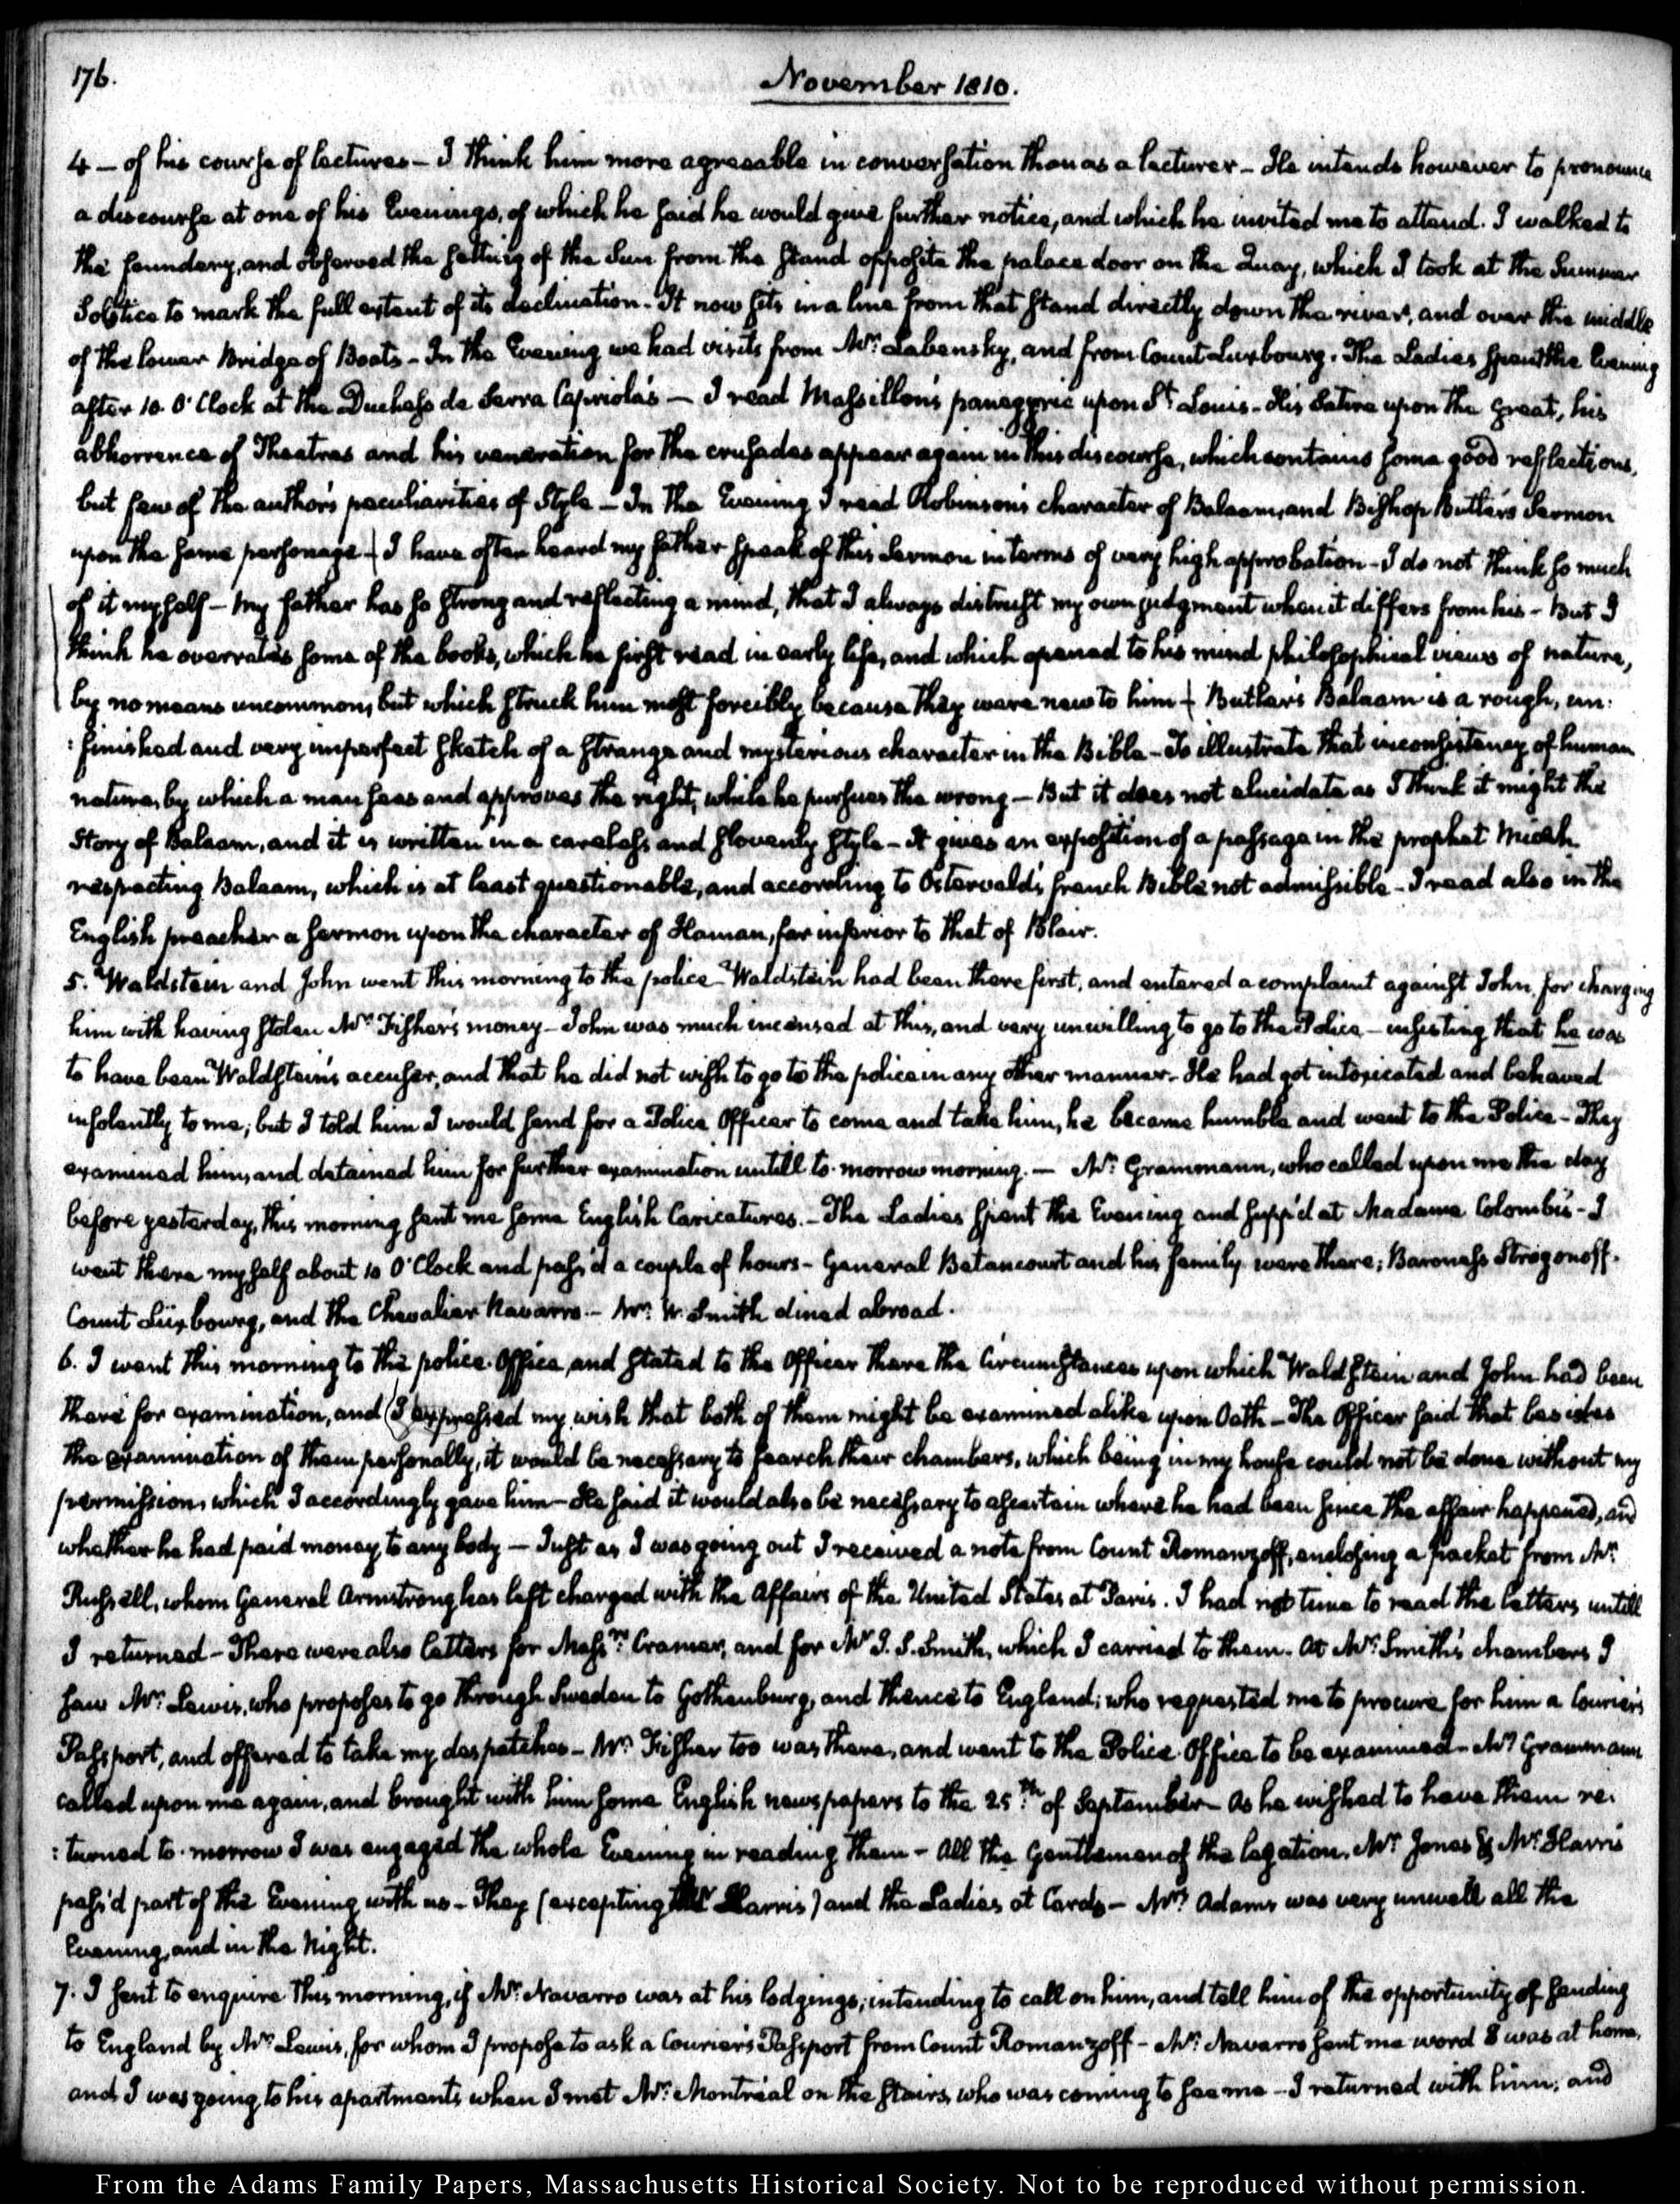 176.
November 1810.
4 – of his course of lectures – I think him more agreeable in conversation than as a lecturer – He intends however to pronounce
a discourse at one of his Evenings, of which he said he would give further notice, and which he invited me to attend. I walked to
the foundery, and observed the setting of the Sun from the stand opposite the palace door on the Quay, which I took at the Summer
Solstice to mark the full extent of its declination. It now sets in a line from that stand directly down the river, and over the middle
of the lower Bridge of Boats – In the Evening we had visits from Mr. Labensky, and from Count Luxbourg. The Ladies spent the Evening
after 10. O'Clock at the Duchess de Serra Capriola's – I read Massillon's panegyric upon St. Louis – His Satire upon the great, his
abhorrence of Theatres and his veneration for the crusades appear again in this discourse, which contains some good reflections,
but few of the author's peculiarities of Style – In the Evening I read Robinson's character of Balaam, and Bishop Butler's Sermon
upon the same personage – I have often heard my father speak of this Sermon in terms of very high approbation – I do not think so much
of it myself – My father has so strong and reflecting a mind, that I always distrust my own judgment when it differs from his – But I
think he overrates some of the books, which he first read in early life, and which opened to his mind philosophical views of nature,
by no means uncommon, but which struck him most forcibly because they were new to him – Butler's Balaam is a rough, un:
:finished and very imperfect sketch of a strange and mysterious character in the Bible – To illustrate that inconsistency of human
nature, by which a man sees and approves the right, while he pursues the wrong – But it does not elucidate as I think it might the
Story of Balaam, and it is written in a careless and slovenly style – It gives an exposition of a passage in the prophet Micah
respecting Balaam, which is at least questionable, and according to Ostervald's french Bible not admissible – I read also in the
English preacher a sermon upon the character of Haman, far inferior to that of Blair.
5. Waldstein and John went this morning to the police – Waldstein had been there first, and entered a complaint against John, for charging
him with having stolen Mr. Fisher's money – John was much incensed at this, and very unwilling to go to the Police – insisting that he was
to have been Waldstein's accuser, and that he did not wish to go to the police in any other manner – He had got intoxicated and behaved
insolently to me; but I told him I would send for a Police Officer to come and take him, he became humble and went to the Police – They
examined him, and detained him for further examination untill to-morrow morning. – Mr. Grammann, who called upon me the day
before yesterday, this morning sent me some English Caricatures. – The Ladies spent the Evening and supp'd at Madame Colombi's – I
went there myself about 10 O'Clock and pass'd a couple of hours – General Betancourt and his family were there; Baroness Strogonoff.
Count Luxbourg, and the Chevalier Navarro. – Mr. W. Smith dined abroad.
6. I went this morning to the police Office, and stated to the Officer there the Circumstances upon which Waldstein and John had been
there for examination, and (I expressed my wish that both of them might be examined alike upon Oath – The Officer said that besides
the examination of them personally, it would be necessary to search their chambers, which being in my house could not be done without my
permission, which I accordingly gave him – He said it would also be necessary to ascertain where he had been since the affair happened, and
whether he had paid money to any body – Just as I was going out I received a note from Count Romanzoff, enclosing a packet from Mr.
Russell, whom General Armstrong has left charged with the Affairs of the United States at Paris. I had not time to read the letters untill
I returned – There were also letters for Messrs. Cramer, and for Mr. J. S. Smith, which I carried to them. At Mr. Smith's chambers I
saw Mr. Lewis, who proposes to go through Sweden to Gothenburg, and thence to England; who requested me to procure for him a Courier's
Passport, and offered to take my despatches – Mr. Fisher too was there, and went to the Police Office to be examined – Mr. Grammann
called upon me again, and brought with him some English newspapers to the 25th. of September – As he wished to have them re:
:turned to-morrow I was engaged the whole Evening in reading them – All the Gentlemen of the legation, Mr. Jones & Mr. Harris
pass'd part of the Evening with us – They (excepting Mr. Harris) and the Ladies at Cards – Mrs. Adams was very unwell all the
Evening, and in the Night.
7. I sent to enquire this morning, if Mr. Navarro was at his lodgings; intending to call on him, and tell him of the opportunity of sending
to England by Mr. Lewis, for whom I propose to ask a Courier's Passport from Count Romanzoff – Mr. Navarro sent me word I was at home,
and I was going to his apartments when I met Mr. Montréal on the stairs, who was coming to see me – I returned with him; and
From the Adams Family Papers, Massachusetts Historical Society. Not to be reproduced without permission.